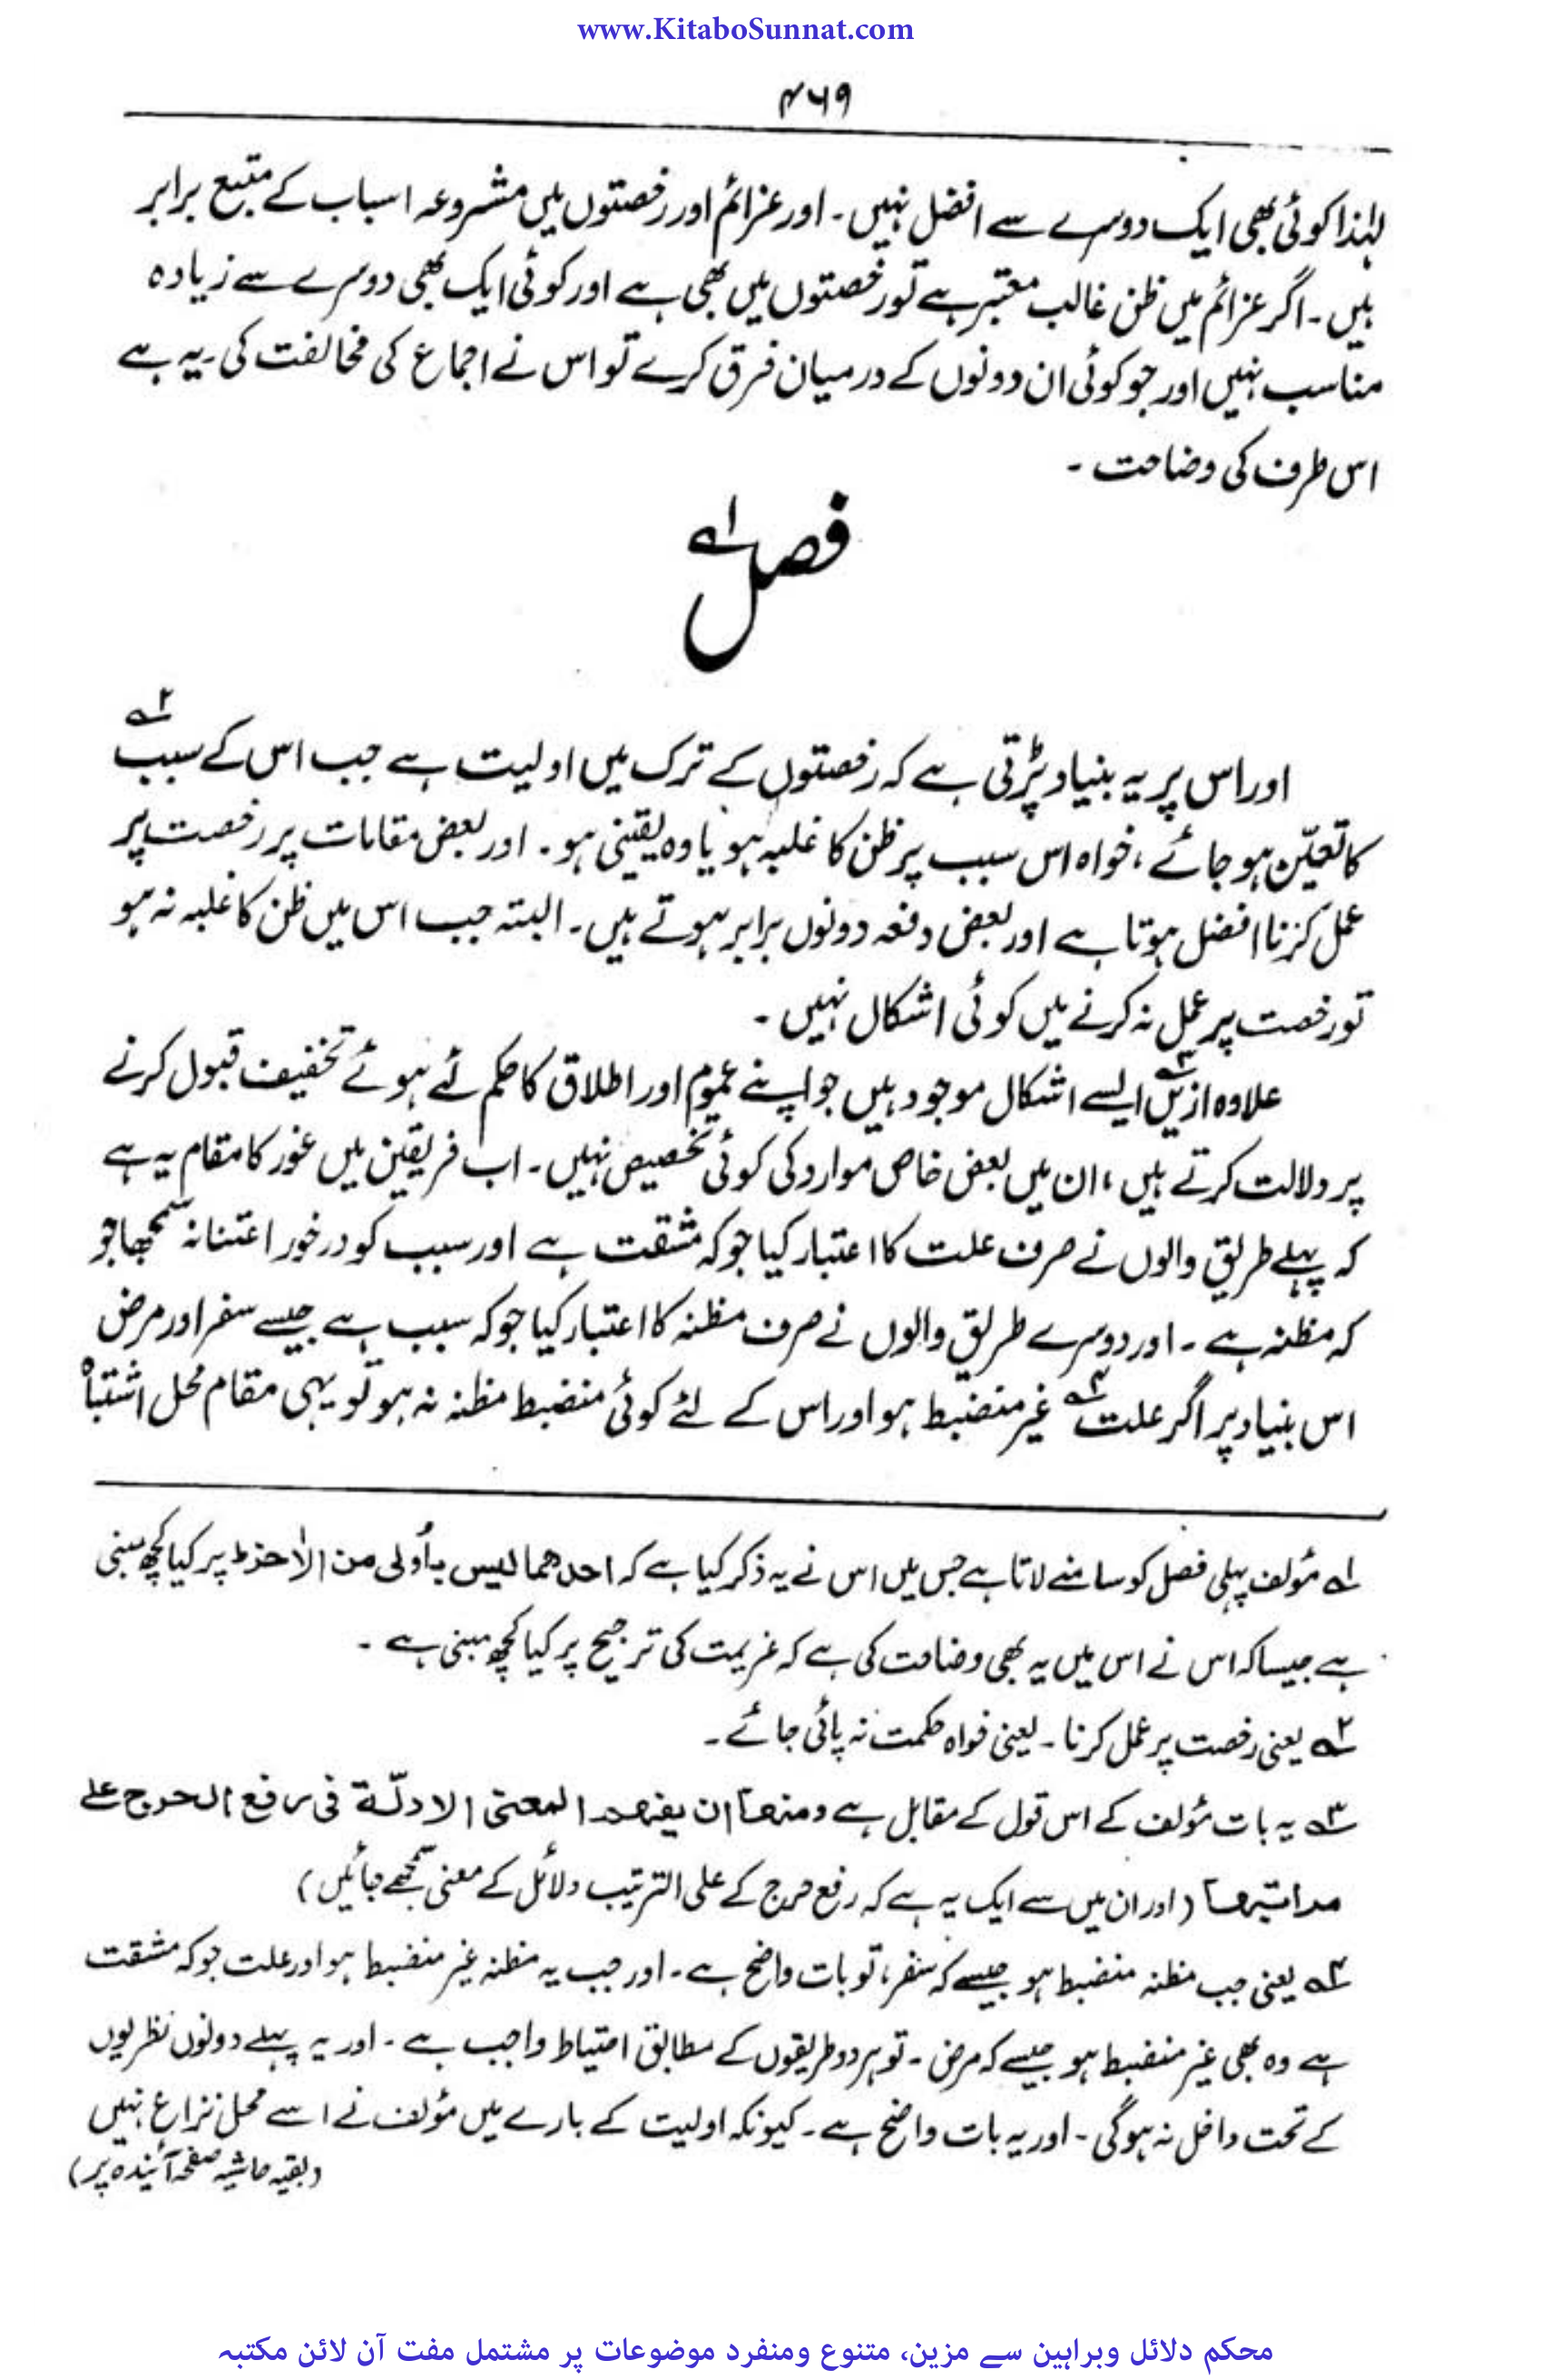 www.KitaboSunnat.com
۴۶۹
لہٰذا کوئی بھی ایک دوسرے سے افضل نہیں۔ اور عزائم اور رخصتوں میں مشروعہ اسباب کے متبع برابر
ہیں۔ اگر عزائم میں ظن غالب معتبر ہے تو رخصتوں میں بھی ہے اور کوئی ایک بھی دوسرے سے زیادہ
مناسب نہیں اور جو کوئی ان دونوں کے درمیان فرق کرے تو اس نے اجماع کی مخالفت کی۔ یہ ہے
اس طرف کی وضاحت ۔
فصل ۱؎
اور اس پر یہ بنیاد پڑتی ہے کہ رخصتوں کے ترک میں اولیت ہے جب اس کے سبب ۲؎
کا تعیّن ہو جائے ، خواہ اس سبب پر ظن کا غلبہ ہو یا وہ یقینی ہو ۔ اور بعض مقامات پر رخصت پر
عمل کرنا افضل ہوتا ہے اور بعض دفعہ دونوں برابر ہوتے ہیں۔ البتہ جب اس میں ظن کا غلبہ نہ ہو
تو رخصت پر عمل نہ کرنے میں کوئی اشکال نہیں ۔
علاوہ ازیں ۳؎ ایسے اشکال موجود ہیں جو اپنے عموم اور اطلاق کا حکم لئے ہوئے تخفیف قبول کرنے
پر دلالت کرتے ہیں ، ان میں بعض خاص موارد کی کوئی تخصیص نہیں۔ اب فریقین میں غور کا مقام یہ ہے
کہ پہلے طریق والوں نے صرف علت کا اعتبار کیا جو کہ مشقت ہے اور سبب کو درخور اعتنا نہ سمجھا جو
کہ مظنہ ہے ۔ اور دوسرے طریق والوں نے صرف مظنہ کا اعتبار کیا جو کہ سبب ہے جیسے سفر اور مرض
اس بنیاد پر اگر علت ۴؎ غیر منضبط ہو اور اس کے لئے کوئی منضبط مظنہ نہ ہو تو یہی مقام محل اشتباہ
۱؎ مؤلف پہلی فصل کو سامنے لاتا ہے جس میں اس نے یہ ذکر کیا ہے کہ احدھما لیس بأولی من الاٰخر پر کیا کچھ مبنی
ہے جیسا کہ اس نے اس میں یہ بھی وضاحت کی ہے کہ عزیمت کی ترجیح پر کیا کچھ مبنی ہے ۔
۲؎ یعنی رخصت پر عمل کرنا ۔ یعنی خواہ حکمت نہ پائی جائے ۔
۳؎ یہ بات مؤلف کے اس قول کے مقابل ہے ومنھا ان یفھم المعنی الادلّة فی رفع الحرج علی
مراتبھا (اور ان میں سے ایک یہ ہے کہ رفع حرج کے علی الترتیب دلائل کے معنی سمجھے جائیں)
۴؎ یعنی جب مظنہ منضبط ہو جیسے کہ سفر، تو بات واضح ہے۔ اور جب یہ مظنہ غیر منضبط ہو اور علت جو کہ مشقت
ہے وہ بھی غیر منضبط ہو جیسے کہ مرض ۔ تو ہر دو طریقوں کے مطابق احتیاط واجب ہے ۔ اور یہ پہلے دونوں نظریوں
کے تحت داخل نہ ہوگی ۔ اور یہ بات واضح ہے ۔ کیونکہ اولیت کے بارے میں مؤلف نے اسے محل نزاع نہیں
(بقیہ حاشیہ صفحہ آئندہ پر)
محکم دلائل وبراہین سے مزین، متنوع ومنفرد موضوعات پر مشتمل مفت آن لائن مکتبہ